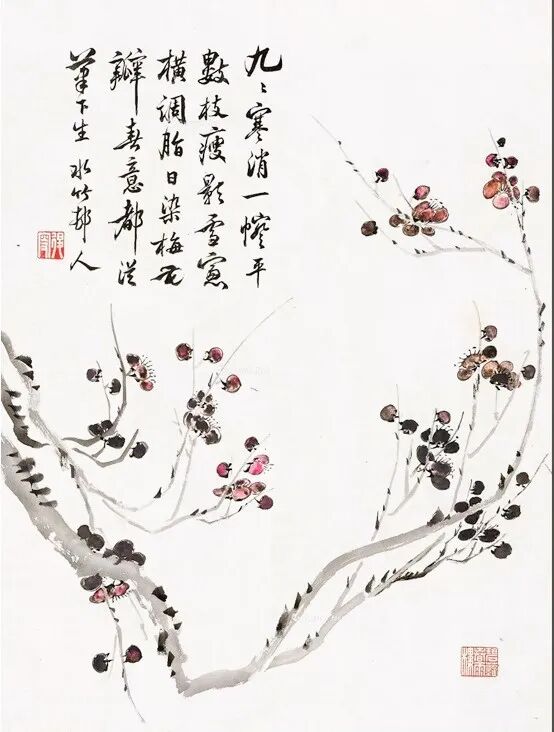 九〻寒消一平
數枝瘦影雪窗
橫調脂日染梅花
瓣春意都從
筆下生 水竹邨人